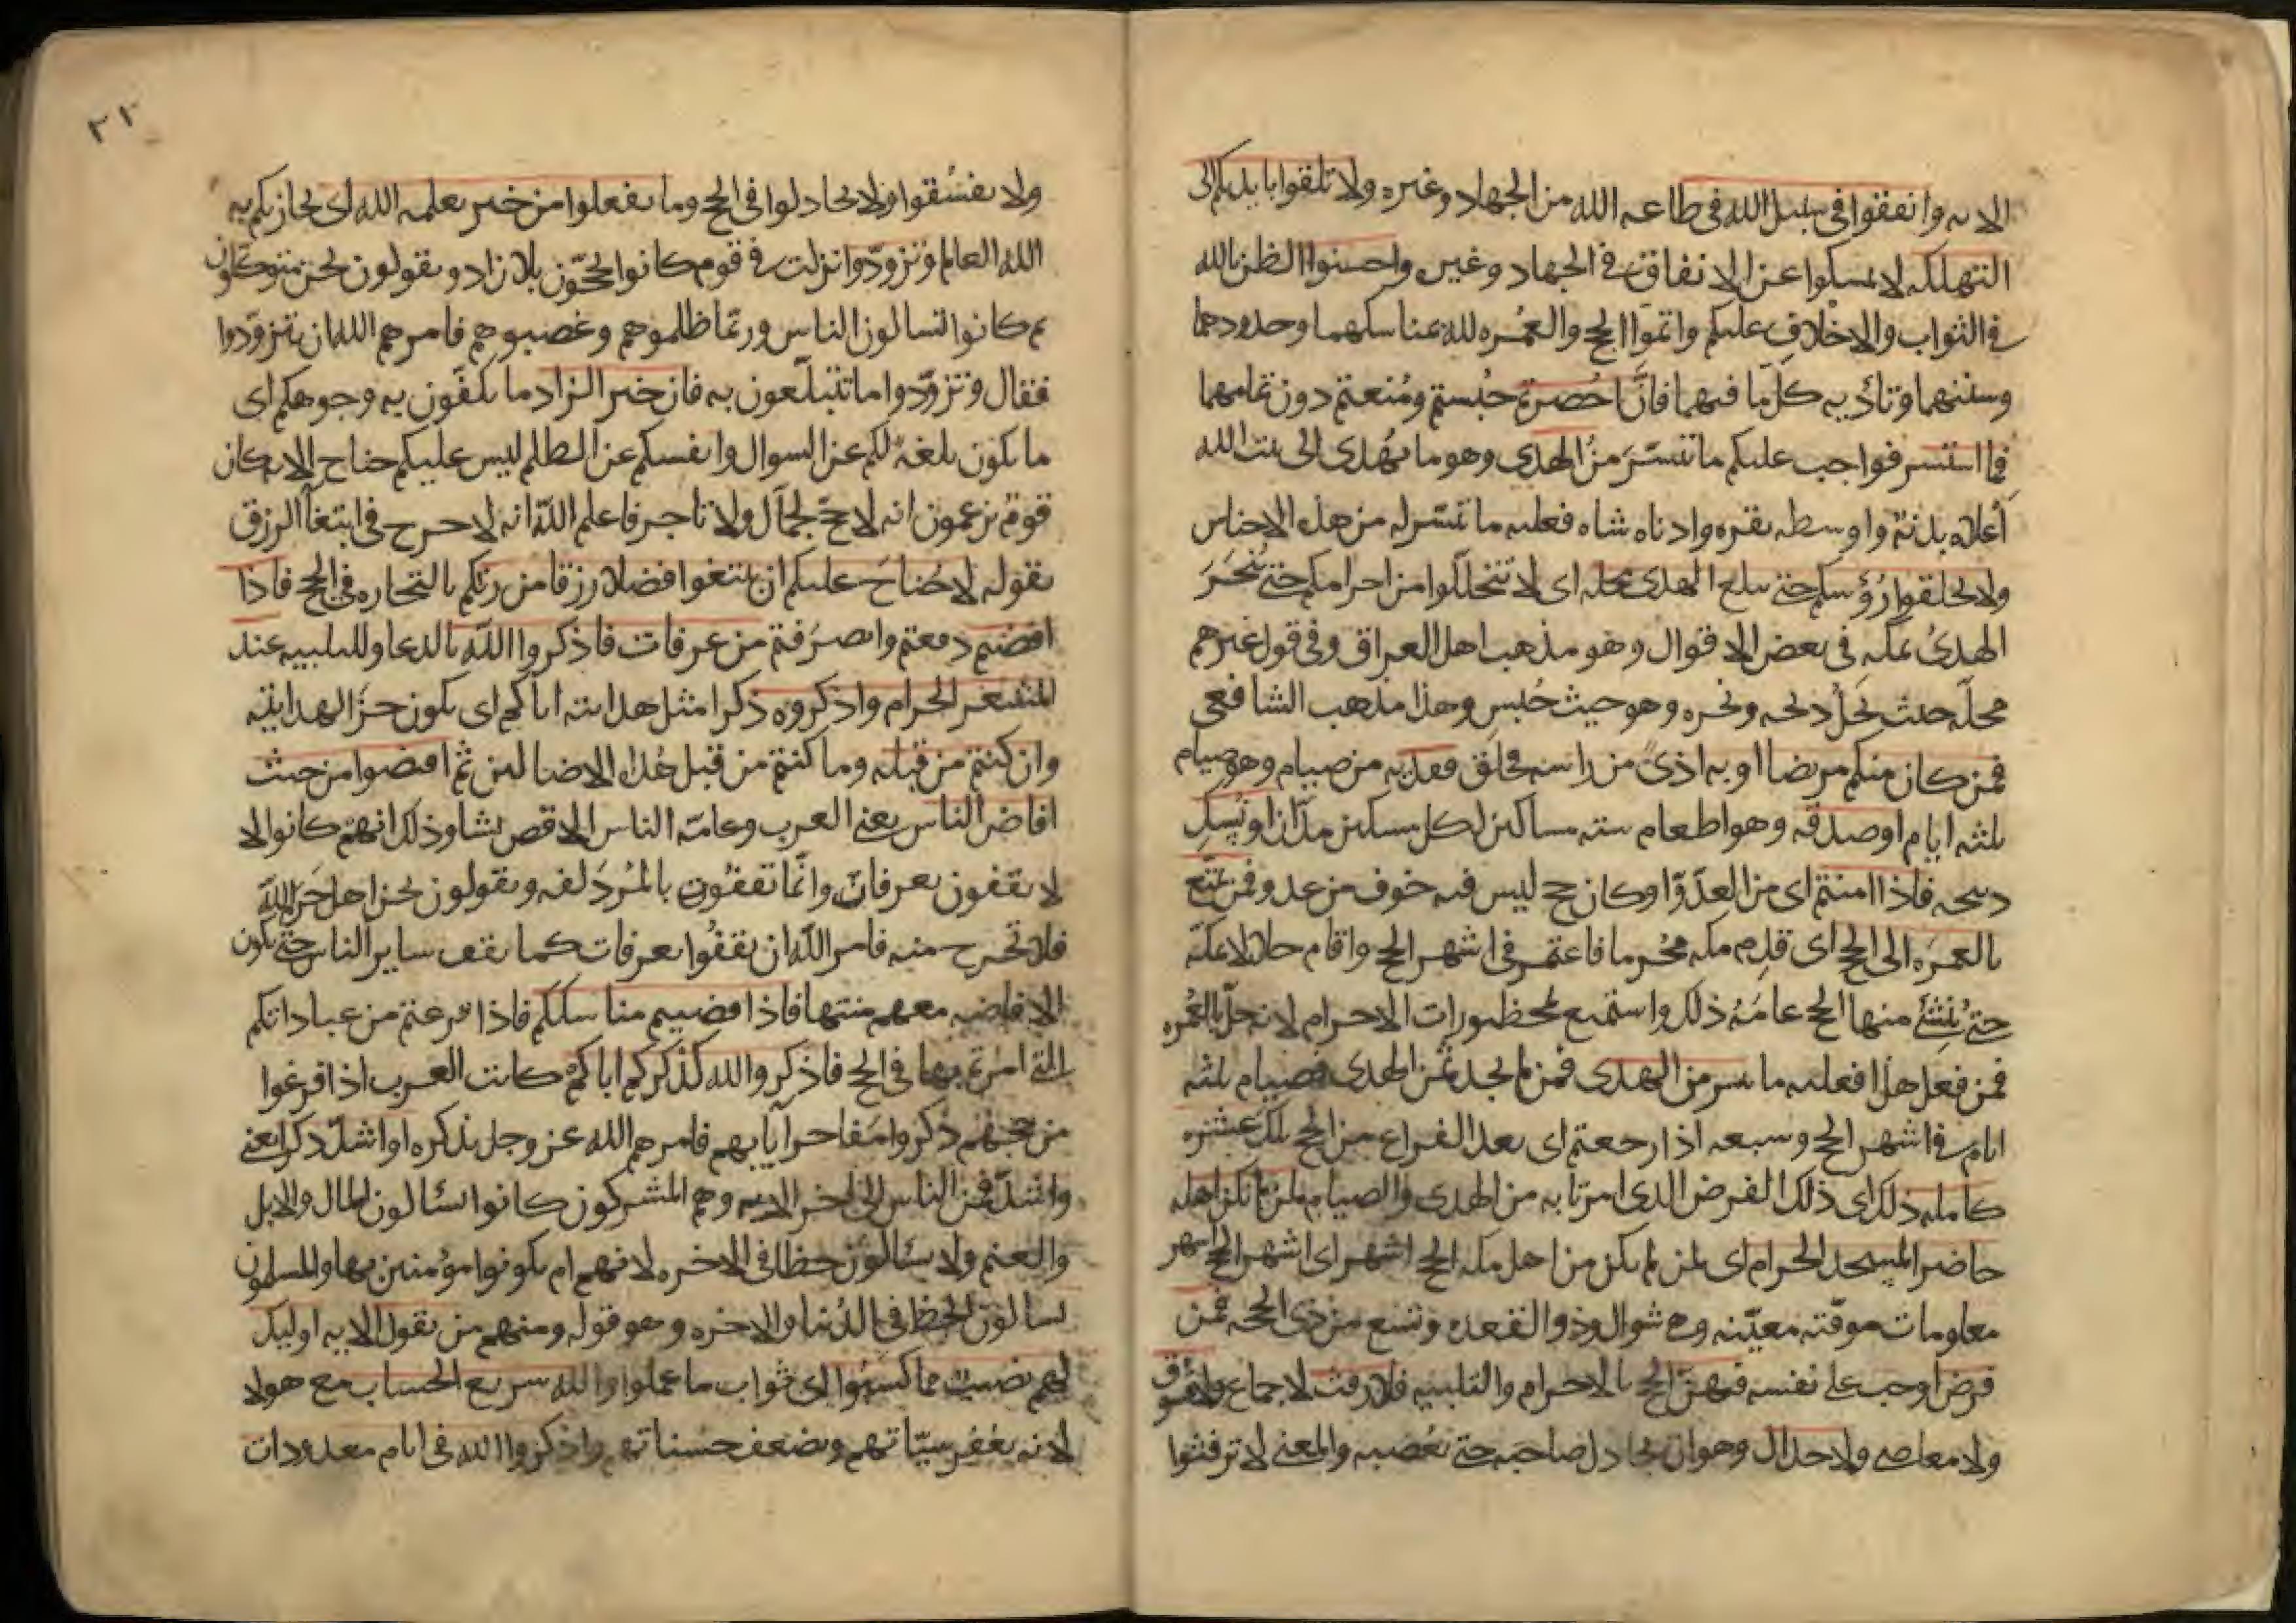 الايه وانفقوا في سبيل الله في طاعه الله من الجهاد وغيره ولا تلقوا بايديكم الى
التهلكه لا تمسكوا عن الانفاق في الجهاد وغيره واحسنوا الظن بالله
في الثواب والاخلاف عليكم واتموا الحج والعمره لله بمناسكهما وحدودهما
وسننهما وتاديه كل ما فيهما فان احصرتم حبستم ومنعتم دون تمامهما
فما استيسر فواجب عليكم ما تيسر من الهدى وهو ما يهدى الى بيت الله
اعلاه بدنة واوسطه بقره وادناه شاه فعليه ما تيسر له من هذه الاجناس
ولا تحلقوا رؤسكم حتى يبلغ الهدى محله اى لا تتحللوا من احرامكم حتى ينحر
الهدى بمكه في بعض الاقوال وهو مذهب اهل العراق وفي قول غيرهم
محله حيث يحل ذبحه ونحره وهو حيث حبس وهذا مذهب الشافعي
فمن كان منكم مريضا او به اذى من راسه فحلق ففديه من صيام وهو صيام
ثلثه ايام او صدقه وهو اطعام سته مساكين لكل مسكين مدان او نسك
ذبيحه فاذا امنتم اى من العدو او كان حج ليس فيه خوف من عدو فمن تمتع
بالعمره الى الحج اى قدم مكه محرما فاعتمر في اشهر الحج واقام حلالا بمكة
حتى ينشئ منها الحج عامه ذلك واستمتع بمحظورات الاحرام لانه حل بالعمره
فمن فعل هذا فعليه ما تيسر من الهدى فمن لم يجد ثمن الهدى فصيام ثلثه
ايام في اشهر الحج وسبعه اذا رجعتم اى بعد الفراغ من الحج تلك عشره
كامله ذلك اى ذلك الفرض الذى امرنا به من الهدى والصيام لمن لم يكن اهله
حاضر المسجد الحرام اى لمن لم يكن من اهل مكه الحج اشهر اى اشهر الحج اشهر
معلومات موقته معينه وهي شوال وذو القعده وتسع من ذى الحجه فمن
فرض اوجب على نفسه فيهن الحج بالاحرام والتلبيه فلا رفث لا جماع ولا فسوق
ولا معاصي ولا جدال وهو ان يجادل صاحبه حتى يغضبه والمعنى لا ترفثوا
٢٢
ولا تفسقوا ولا تجادلوا في الحج وما تفعلوا من خير يعلمه الله اى يجازيكم به
الله العالم وتزودوا نزلت في قوم كانوا يحجون بلا زاد ويقولون نحن متوكلون
ثم كانوا يسالون الناس وربما ظلموهم وغصبوهم فامرهم الله ان يتزودوا
فقال وتزودوا ما تتبلغون به فان خير الزاد ما تكفون به وجوهكم اى
ما يكون بلغة لكم عن السوال وانفسكم عن الظلم ليس عليكم جناح الايه كان
قوم يزعمون انه لا حج لجمال ولا تاجر فاعلم الله انه لا حرج في ابتغا الرزق
بقوله لا جناح عليكم ان تبتغوا فضلا رزقا من ربكم بالتجاره في الحج فاذا
افضتم دفعتم وانصرفتم من عرفات فاذكروا الله بالدعا والتلبيه عند
المشعر الحرام واذكروه ذكرا مثل هدايته اياكم اى يكون جزا لهدايته
وان كنتم من قبله وما كنتم من قبل هداه الا ضالين ثم افيضوا من حيث
افاض الناس يعني العرب وعامه الناس الا قريشا وذلك انهم كانوا لا
لا يقفون بعرفات وانما يقفون بالمزدلفه ويقولون نحن اهل حرم الله
فلا نخرج منه فامر الله ان يقفوا بعرفات كما يقف ساير الناس حتى تكون
الافاضه معهم منها فاذا قضيتم مناسككم فاذا فرغتم من عباداتكم
التي امرتم بها في الحج فاذكروا الله كذكركم اباكم كانت العرب اذا فرغوا
من حجهم ذكروا مفاخر آبايهم فامرهم الله عز وجل بذكره او اشد ذكرا يعني
واشد فمن الناس الى اخر الايه وهم المشركون كانوا يسالون المال والابل
والغنم ولا يسالون حظا في الاخره لانهم لم يكونوا مؤمنين بها والمسلمون
يسالون الحظ في الدنيا والاخره وهو قوله ومنهم من يقول الايه اوليك
لهم نصيب مما كسبوا اى ثواب ما عملوا والله سريع الحساب مع هولا
لانه يغفر سيئاتهم ويضعف حسناتهم واذكروا الله في ايام معدودات